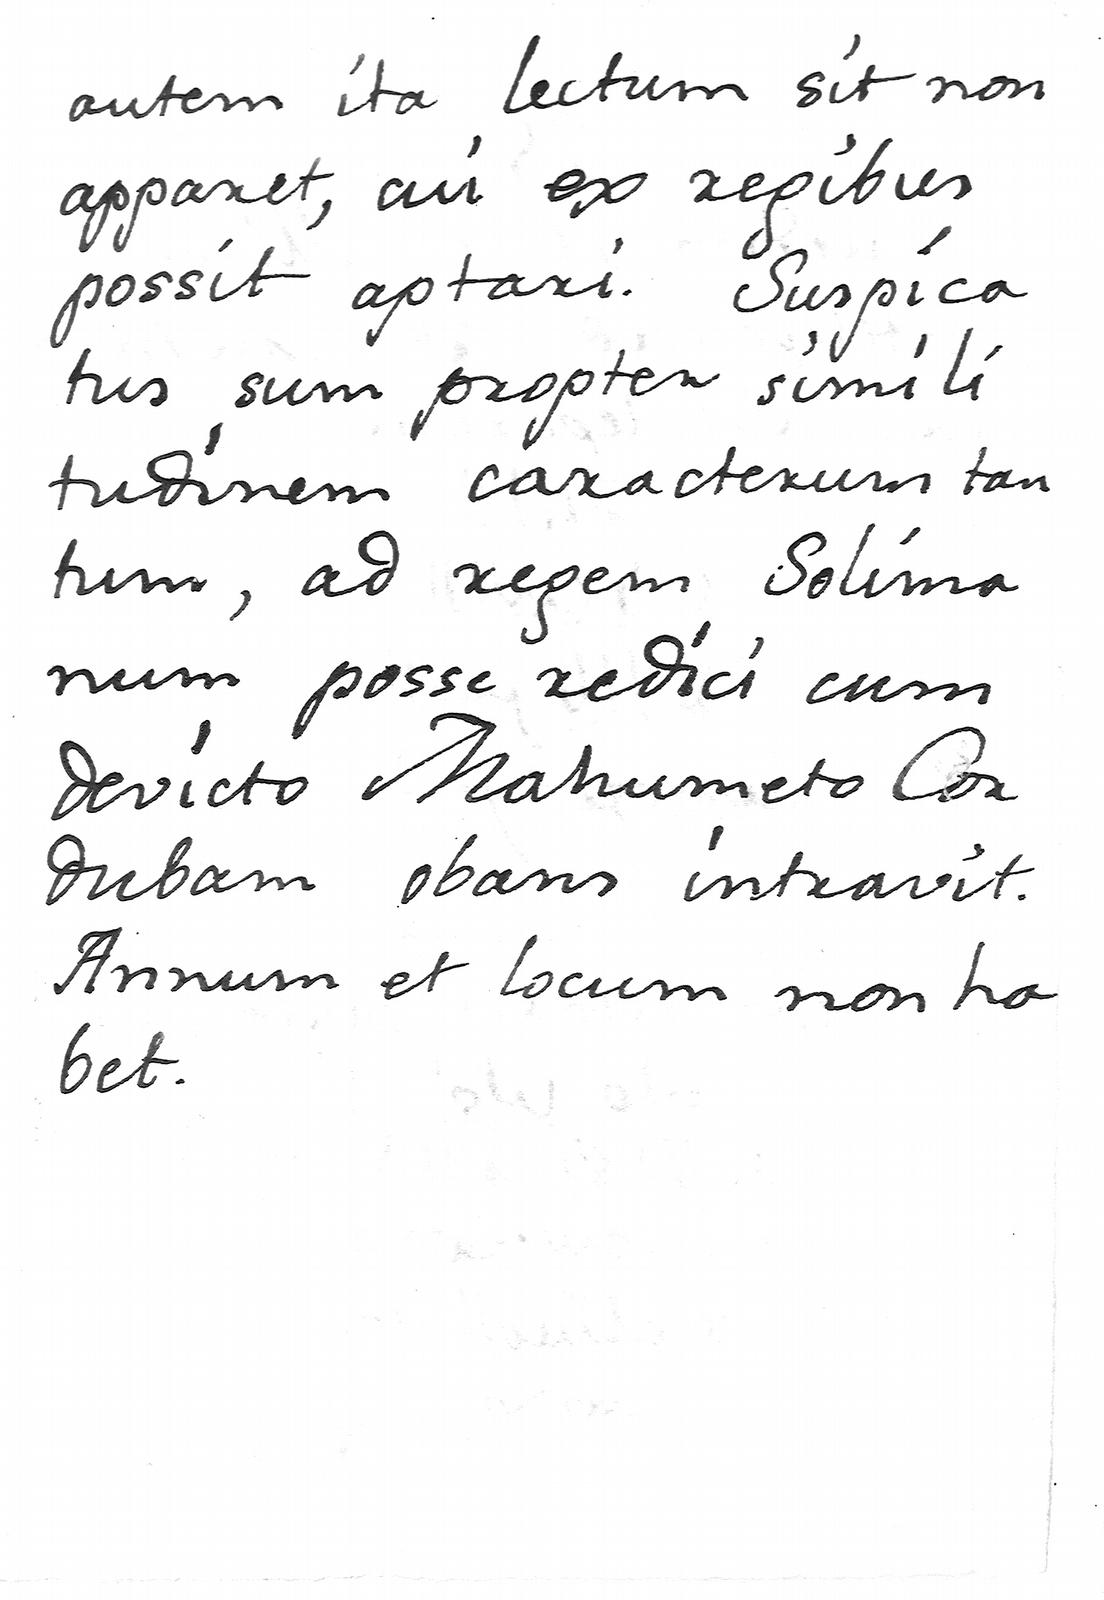 autem ita lectum sit non
apparet, cui ex regibus
possit aptari. Suspica
tus sum propter simili
tudinem caracterum tan
tum, ad regem Solima
num posse redici cum
devicto Mahumeto Cor
dubam obans intravit.
Annum et locum non ha
bet.